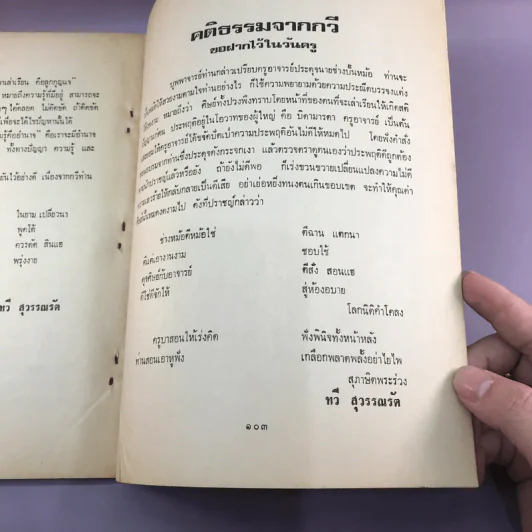 นเล่าเรียน คือลูกกุญแจ"
หมายถึงความรู้ที่มีอยู่ สามารถจะ
ทั้งทางปัญญา ความรู้ และ
เนื่องจากกวีท่าน
ในยาม เปลี่ยวนา
พูดได้
ควรคัด สินแฮ
พรุ่งงาย
ทวี สุวรรณรัต
คติธรรมจากกวี
ขอฝากไว้ในวันครู
บุพพาจารย์ท่านกล่าวเปรียบครูอาจารย์ประดุจนายช่างปั้นหม้อ ท่านจะ
ให้สวยงามตามใจท่านอย่างไร ก็ใช้ความพยายามด้วยความประณีตบรรจงแต่ง
หมายถึงว่า ศิษย์ทั้งปวงพึงทราบโดยหน้าที่ของตนที่จะเล่าเรียนให้เกิดสติ
ประพฤติอยู่ในโอวาทของผู้ใหญ่ คือ บิดามารดา ครูอาจารย์ เป็นต้น
ให้ครูอาจารย์ได้ขจัดปัดเป่าความประพฤติอันไม่ดีให้หมดไป โดยฟังคำสั่ง
จากท่านซึ่งประดุจดังกระจกเงา แล้วตรวจตราดูตนเองว่าประพฤติดีถูกต้อง
แล้วหรือยัง ถ้ายังไม่ดีพอ ก็เร่งขวนขวายเปลี่ยนแปลงความไม่ดี
ให้กลับกลายเป็นดีเสีย อย่าเย่อหยิ่งทนงตนเกินขอบเขต จะทำให้คุณค่า
งดงามไป ดังที่ปราชญ์กล่าวว่า
ช่างหม้อตีหม้อใช่ ตีฉาน แตกนา
ตีแต่เอางามงาม ชอบใช้
ดุจศิษย์กับอาจารย์ ตีสั่ง สอนแฮ
ตีใช่ตีจักให้ สู่ห้องอบาย
โลกนิติคำโคลง
ครูบาสอนให้เร่งคิด พึ่งพินิจทั้งหน้าหลัง
ท่านสอนเอาหูฟัง เกลือกพลาดพลั้งอย่าไยไพ
สุภาษิตพระร่วง
ทวี สุวรรณรัต
๑๐๓